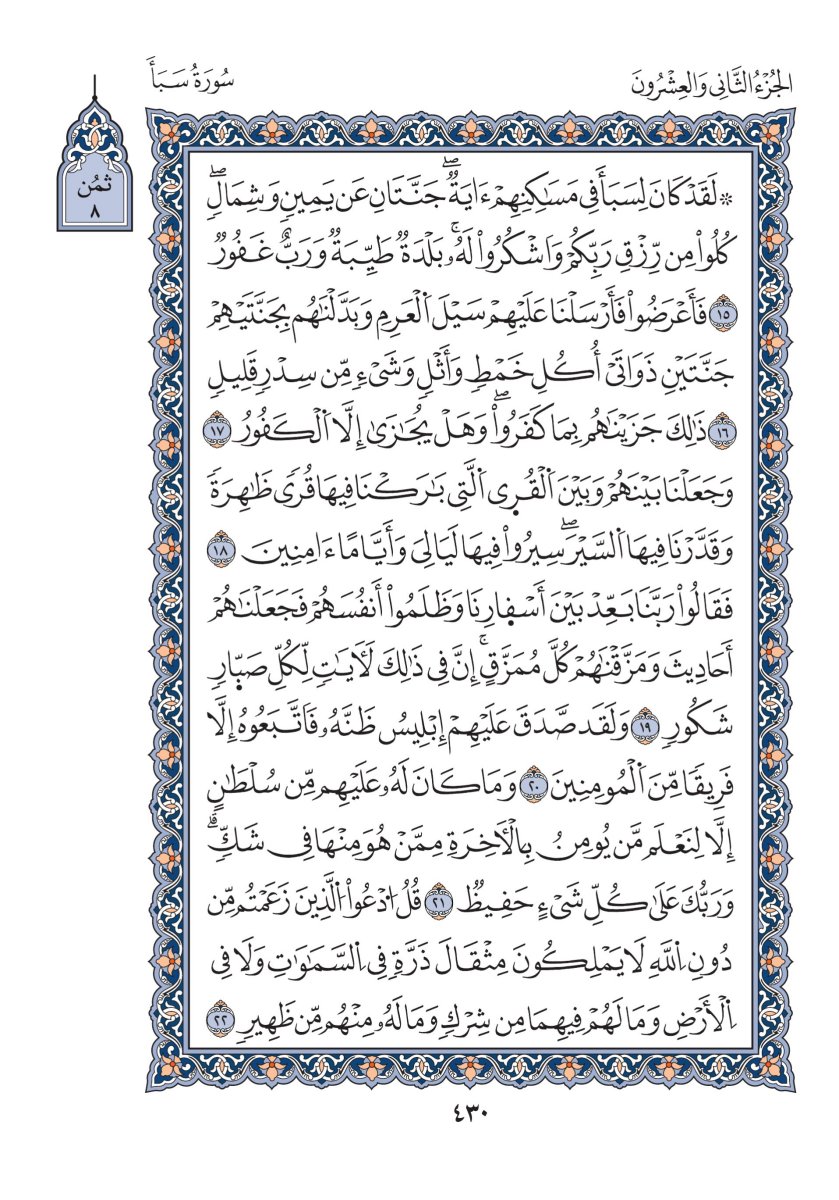 الجُزْءُ الثَّانِى وَالعِشْرُونَ
سُورَةُ سَبَأ
ثُمُن
٨
۞ لَقَدْ كَانَ لِسَبَأٖ فِے مَسَٰكِنِهِمْ ءَايَةٞۖ جَنَّتَٰنِ عَن يَمِينٖ وَشِمَالٖۖ
كُلُواْ مِن رِّزْقِ رَبِّكُمْ وَاشْكُرُواْ لَهُۥۚ بَلْدَةٞ طَيِّبَةٞ وَرَبٌّ غَفُورٞ
١٥ فَأَعْرَضُواْ فَأَرْسَلْنَا عَلَيْهِمْ سَيْلَ اَلْعَرِمِ وَبَدَّلْنَٰهُم بِجَنَّتَيْهِمْ
جَنَّتَيْنِ ذَوَاتَىْ أُكُلٍ خَمْطٖ وَأَثْلٖ وَشَےْءٖ مِّن سِدْرٖ قَلِيلٖ
١٦ ذَٰلِكَ جَزَيْنَٰهُم بِمَا كَفَرُواْۖ وَهَلْ يُجَٰزَىٰ إِلَّا اَلْكَفُورُ ١٧
وَجَعَلْنَا بَيْنَهُمْ وَبَيْنَ اَلْقُرَى اَلَّتِى بَٰرَكْنَا فِيهَا قُرٗى ظَٰهِرَةٗ
وَقَدَّرْنَا فِيهَا اَلسَّيْرَۖ سِيرُواْ فِيهَا لَيَالِىَ وَأَيَّامًا ءَامِنِينَ ١٨
فَقَالُواْ رَبَّنَا بَعِّدْ بَيْنَ أَسْفِارِنَا وَظَلَمُواْ أَنفُسَهُمْ فَجَعَلْنَٰهُمْ
أَحَادِيثَ وَمَزَّقْنَٰهُمْ كُلَّ مُمَزَّقٍۚ إِنَّ فِى ذَٰلِكَ لَأٓيَٰتٖ لِّكُلِّ صَبِّارٖ
شَكُورٖ ١٩ وَلَقَد صَّدَقَ عَلَيْهِمْ إِبْلِيسُ ظَنَّهُۥ فَاتَّبَعُوهُ إِلَّا
فَرِيقٗا مِّنَ اَلْمُومِنِينَ ٢٠ وَمَا كَانَ لَهُۥ عَلَيْهِم مِّن سُلْطَٰنٍ
إِلَّا لِنَعْلَم مَّن يُومِنُ بِالْأٓخِرَةِ مِمَّنْ هُوَ مِنْهَا فِى شَكّٖۗ
وَرَبُّكَ عَلَىٰ كُلِّ شَىْءٍ حَفِيظٞ ٢١ قُلُ اُدْعُواْ اُلَّذِينَ زَعَمْتُم مِّن
دُونِ اِللَّهِ لَا يَمْلِكُونَ مِثْقَالَ ذَرَّةٖ فِى اِلسَّمَٰوَٰتِ وَلَا فِى
اِلْأَرْضِ وَمَا لَهُمْ فِيهِمَا مِن شِرْكٖ وَمَا لَهُۥ مِنْهُم مِّن ظَهِيرٖ ٢٢
٤٣٠